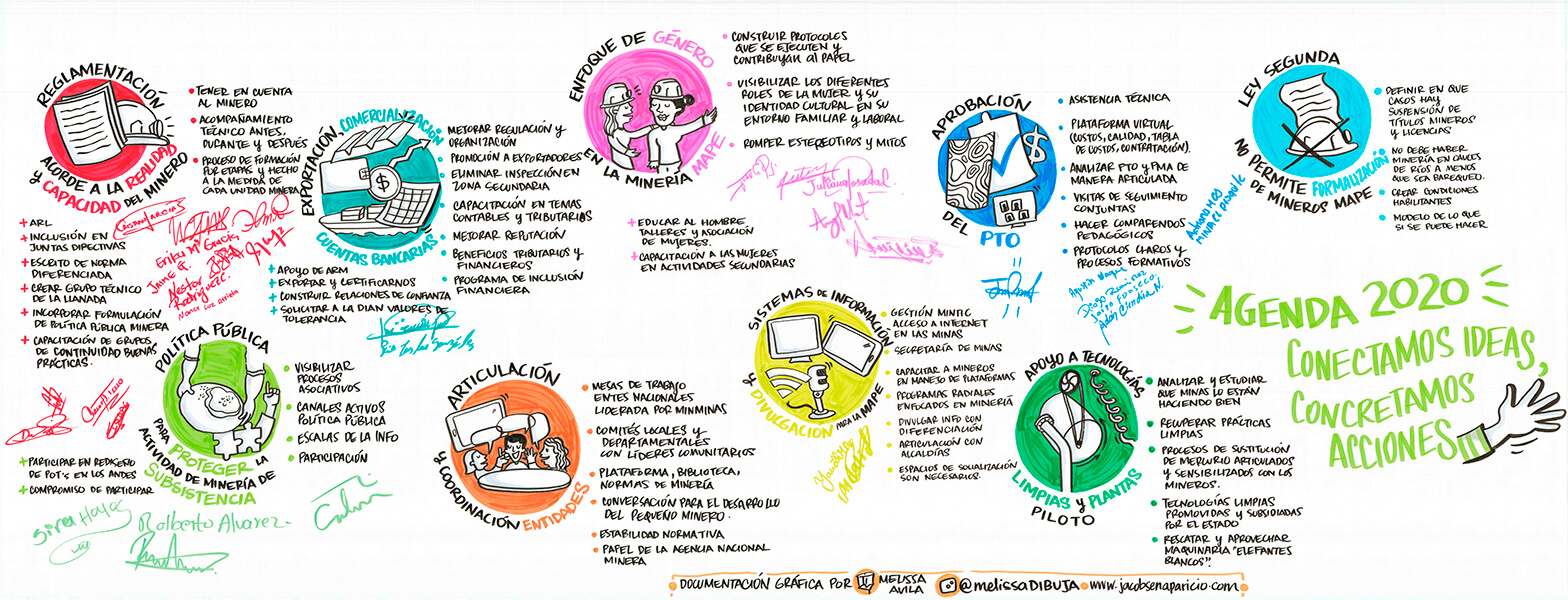 REGLAMENTACIÓN
ACORDE A LA REALIDAD
y CAPACIDAD DEL MINERO
• TENER EN CUENTA
AL MINERO
• ACOMPAÑAMIENTO
TÉCNICO ANTES,
DURANTE y DESPUÉS
• PROCESO DE FORMACIÓN
POR ETAPAS y HECHO
A LA MEDIDA DE
CADA UNIDAD MINERA
+ ARL
+ INCLUSIÓN EN
JUNTAS DIRECTIVAS
+ ESCRITO DE NORMA
DIFERENCIADA
+ CREAR GRUPO TÉCNICO
DE LA LLANADA
+ INCORPORAR FORMULACIÓN
DE POLÍTICA PÚBLICA MINERA
+ CAPACITACIÓN DE GRUPOS
DE CONTINUIDAD BUENAS
PRÁCTICAS.
Nestor
Rodriguez
EXPORTACIÓN, COMERCIALIZACIÓN
CUENTAS BANCARIAS
• MEJORAR REGULACIÓN y
ORGANIZACIÓN
• PROMOCIÓN A EXPORTADORES
• ELIMINAR INSPECCIÓN EN
ZONA SECUNDARIA
• CAPACITACIÓN EN TEMAS
CONTABLES y TRIBUTARIOS
• MEJORAR REPUTACIÓN
• BENEFICIOS TRIBUTARIOS y
FINANCIEROS
• PROGRAMA DE INCLUSIÓN
FINANCIERA
+ APOYO DE ARM
+ EXPORTAR y CERTIFICARNOS
+ CONSTRUIR RELACIONES DE CONFIANZA
+ SOLICITAR A LA DIAN VALORES DE
TOLERANCIA
ENFOQUE DE GÉNERO
EN LA MINERÍA MAPE
• CONSTRUIR PROTOCOLOS
QUE SE EJECUTEN y
CONTRIBUYAN al PAPEL
• VISIBILIZAR LOS DIFERENTES
ROLES DE LA MUJER y SU
IDENTIDAD CULTURAL EN SU
ENTORNO FAMILIAR y LABORAL
• ROMPER ESTEREOTIPOS y MITOS
+ EDUCAR AL HOMBRE,
TALLERES y ASOCIACIÓN
DE MUJERES.
+ CAPACITACIÓN A LAS MUJERES
EN ACTIVIDADES SECUNDARIAS
APROBACIÓN
DEL PTO
• ASISTENCIA TÉCNICA
• PLATAFORMA VIRTUAL
(COSTOS, CALIDAD, TABLA
DE COSTOS, CONTRATACIÓN).
• ANALIZAR PTO y PMA DE
MANERA ARTICULADA
• VISITAS DE SEGUIMIENTO
CONJUNTAS
• HACER COMPARENDOS
PEDAGÓGICOS
• PROTOCOLOS CLAROS y
PROCESOS FORMATIVOS
LEY SEGUNDA
NO PERMITE FORMALIZACIÓN
DE MINEROS MAPE
• DEFINIR EN QUE
CASOS HAY
SUSPENSIÓN DE
TÍTULOS MINEROS
y LICENCIAS
• NO DEBE HABER
MINERÍA EN CAUCES
DE RÍOS A MENOS
QUE SEA BAREQUEO.
• CREAR CONDICIONES
HABILITANTES
• MODELO DE LO QUE
SI SE PUEDE HACER
POLÍTICA PÚBLICA
PARA PROTEGER LA
ACTIVIDAD DE MINERÍA DE
SUBSISTENCIA
• VISIBILIZAR
PROCESOS
ASOCIATIVOS
• CANALES ACTIVOS
POLÍTICA PÚBLICA
• ESCALAS DE LA INFO
• PARTICIPACIÓN
+ PARTICIPAR EN REDISEÑO
DE POT's EN LOS ANDES
+ COMPROMISO DE PARTICIPAR
Ralberto Alvarez
ARTICULACIÓN
y COORDINACIÓN ENTIDADES
• MESAS DE TRABAJO
EMTES NACIONALES
LIDERADA POR MINMINAS
• COMITÉS LOCALES y
DEPARTAMENTALES
CON LÍDERES COMUNITARIOS
• PLATAFORMA, BIBLIOTECA,
NORMAS DE MINERÍA
• CONVERSACIÓN PARA EL DESARROLLO
DEL PEQUEÑO MINERO.
• ESTABILIDAD NORMATIVA
• PAPEL DE LA AGENCIA NACIONAL
MINERA
SISTEMAS DE INFORMACIÓN
y DIVULGACIÓN PARA LA MAPE
• GESTIÓN MINTIC
ACCESO A INTERNET
EN LAS MINAS
• SECRETARÍA DE MINAS
• CAPACITAR A MINEROS
EN MANEJO DE PLATAFORMAS
• PROGRAMAS RADIALES
ENFOCADOS EN MINERÍA
• DIVULGAR INFO CON
DIFERENCIACIÓN
• ARTICULACIÓN CON
ALCALDÍAS
• ESPACIOS DE SOCIALIZACIÓN
SON NECESARIOS.
APOYO A TECNOLOGÍAS
LIMPIAS y PLANTAS
PILOTO
• ANALIZAR y ESTUDIAR
QUE MINAS LO ESTÁN
HACIENDO BIEN
• RECUPERAR PRÁCTICAS
LIMPIAS
• PROCESOS DE SUSTITUCIÓN
DE MERCURIO ARTICULADOS
y SENSIBILIZADOS CON LOS
MINEROS.
• TECNOLOGÍAS LIMPIAS
PROMOVIDAS y SUBSIDIADAS
POR EL ESTADO
• RESCATAR y APROVECHAR
MAQUINARIA "ELEFANTES
BLANCOS".
AGENDA 2020
CONECTAMOS IDEAS,
CONCRETAMOS
ACCIONES
DOCUMENTACIÓN GRÁFICA POR MELISSA AVILA @melissaDIBUJA • www.jacobsenaparicio.com